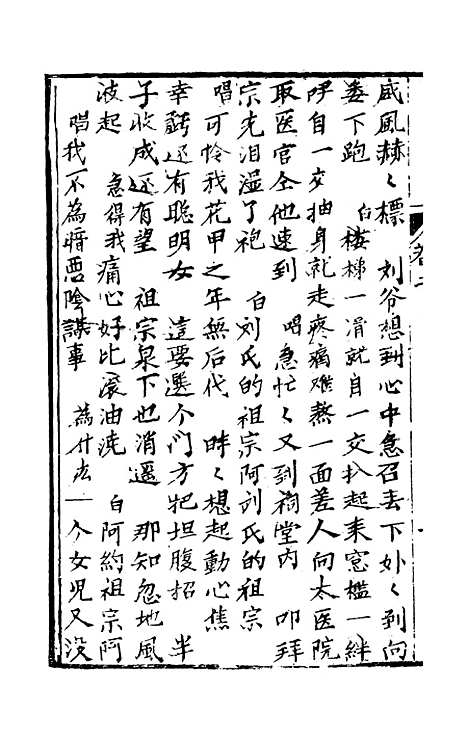 威風赫〻標　刘爷想到心中急召去下奶〻到向
委下跑　白楼梯一滑就自一交扒起来窓檻一絆
呼自一交抽身就走疼痛难熬一面差人向太医院
取医官仝他速到　唱急忙〻又到祠堂内　叩拜
宗先泪湿了袍　白刘氏的祖宗阿刘氏的祖宗
唱可怜我花甲之年無后代　時〻想起動心焦
幸虧还有聪明女　這要選个门方把坦腹招　半
子收成还有望　祖宗泉下也消遥　那知忽地風
波起　急得我痛心好比滚油澆　白阿約祖宗阿
唱我一不為暗惡陰謀事　為什広一个女児又没
卷二